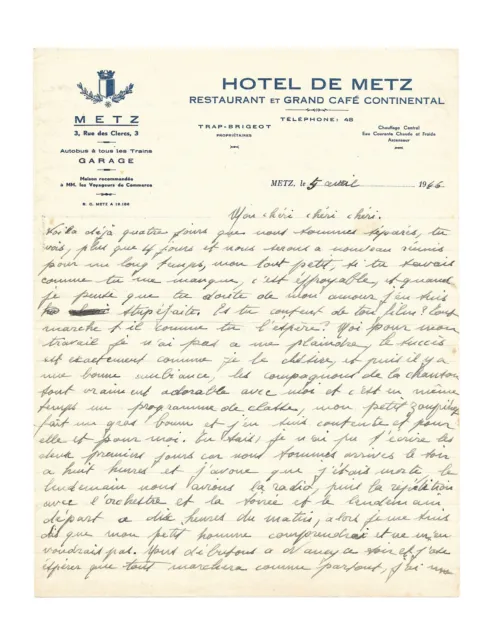 METZ
3, Rue des Clercs, 3
Autobus à tous les Trains
GARAGE
Maison recommandée
à MM. les Voyageurs de Commerce
R. C. METZ A 10.190
HOTEL DE METZ
RESTAURANT ET GRAND CAFÉ CONTINENTAL
TÉLÉPHONE: 48
TRAP-BRIGEOT
PROPRIÉTAIRES
Chauffage Central
Eau Courante Chaude et Froide
Ascenseur
METZ, le 5 avril 1946
Mon chéri chéri chéri.
Voilà déjà quatre jours que nous sommes séparés, tu
vois, plus que 4 jours et nous serons à nouveau réunis
pour un long temps, mon tout petit, si tu savais
comme tu me manque, c'est effroyable, et quand
je pense que tu doute de mon amour j'en suis
stupéfaite. Es tu content de ton film? tout
marche t-il comme tu l'espère? Moi pour mon
travail je n'ai pas a me plaindre, le succès
est exactement comme je le désire, et puis il y a
une bonne ambiance, les compagnons de la chanson
sont vraiment adorable avec moi et c'est en même
temps un programme de classe, mon petit
fait un gros boum et j'en suis contente et pour
elle et pour moi. Tu sais, je n'ai pu t'écrire les
deux premiers jours car nous sommes arrivés le soir
a huit heures et j'avoue que j'étais morte le
lendemain nous avions la radio, puis la répétition
avec l'orchestre et la soirée et le lendemain
départ a dix heures du matin, alors je me suis
dit que mon petit homme comprendrait et ne m'en
voudrait pas. Nous débutons a Nancy ce soir et j'ose
espérer que tout marchera comme partout, j'ai